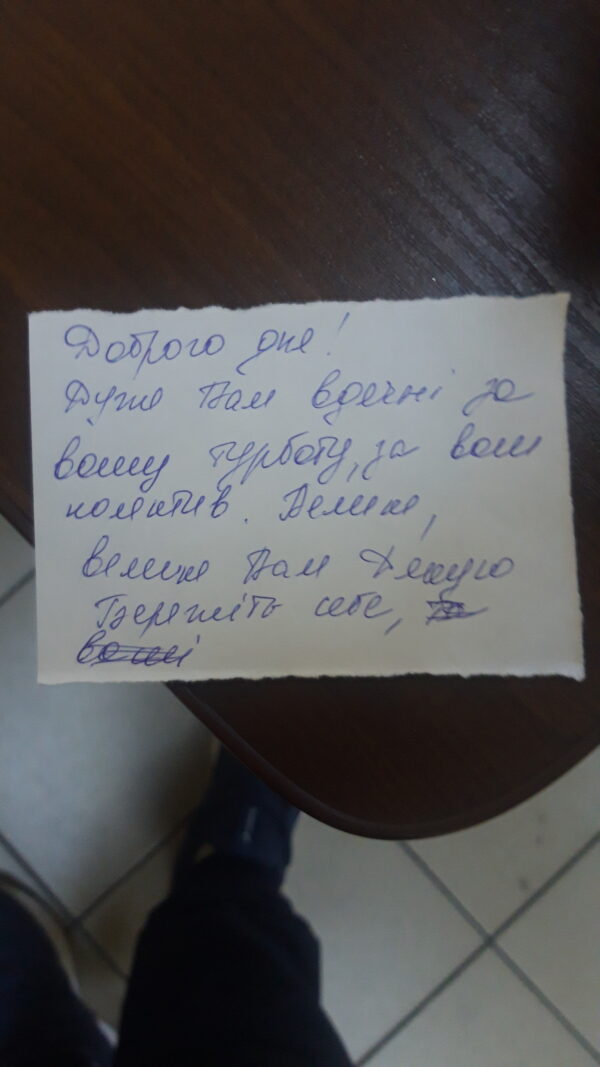 Доброго дня!
Дуже Вам вдячні за
вашу турботу, за ваш
колектив. Велике,
велике Вам Дякую
Бережіть себе, та
ваші